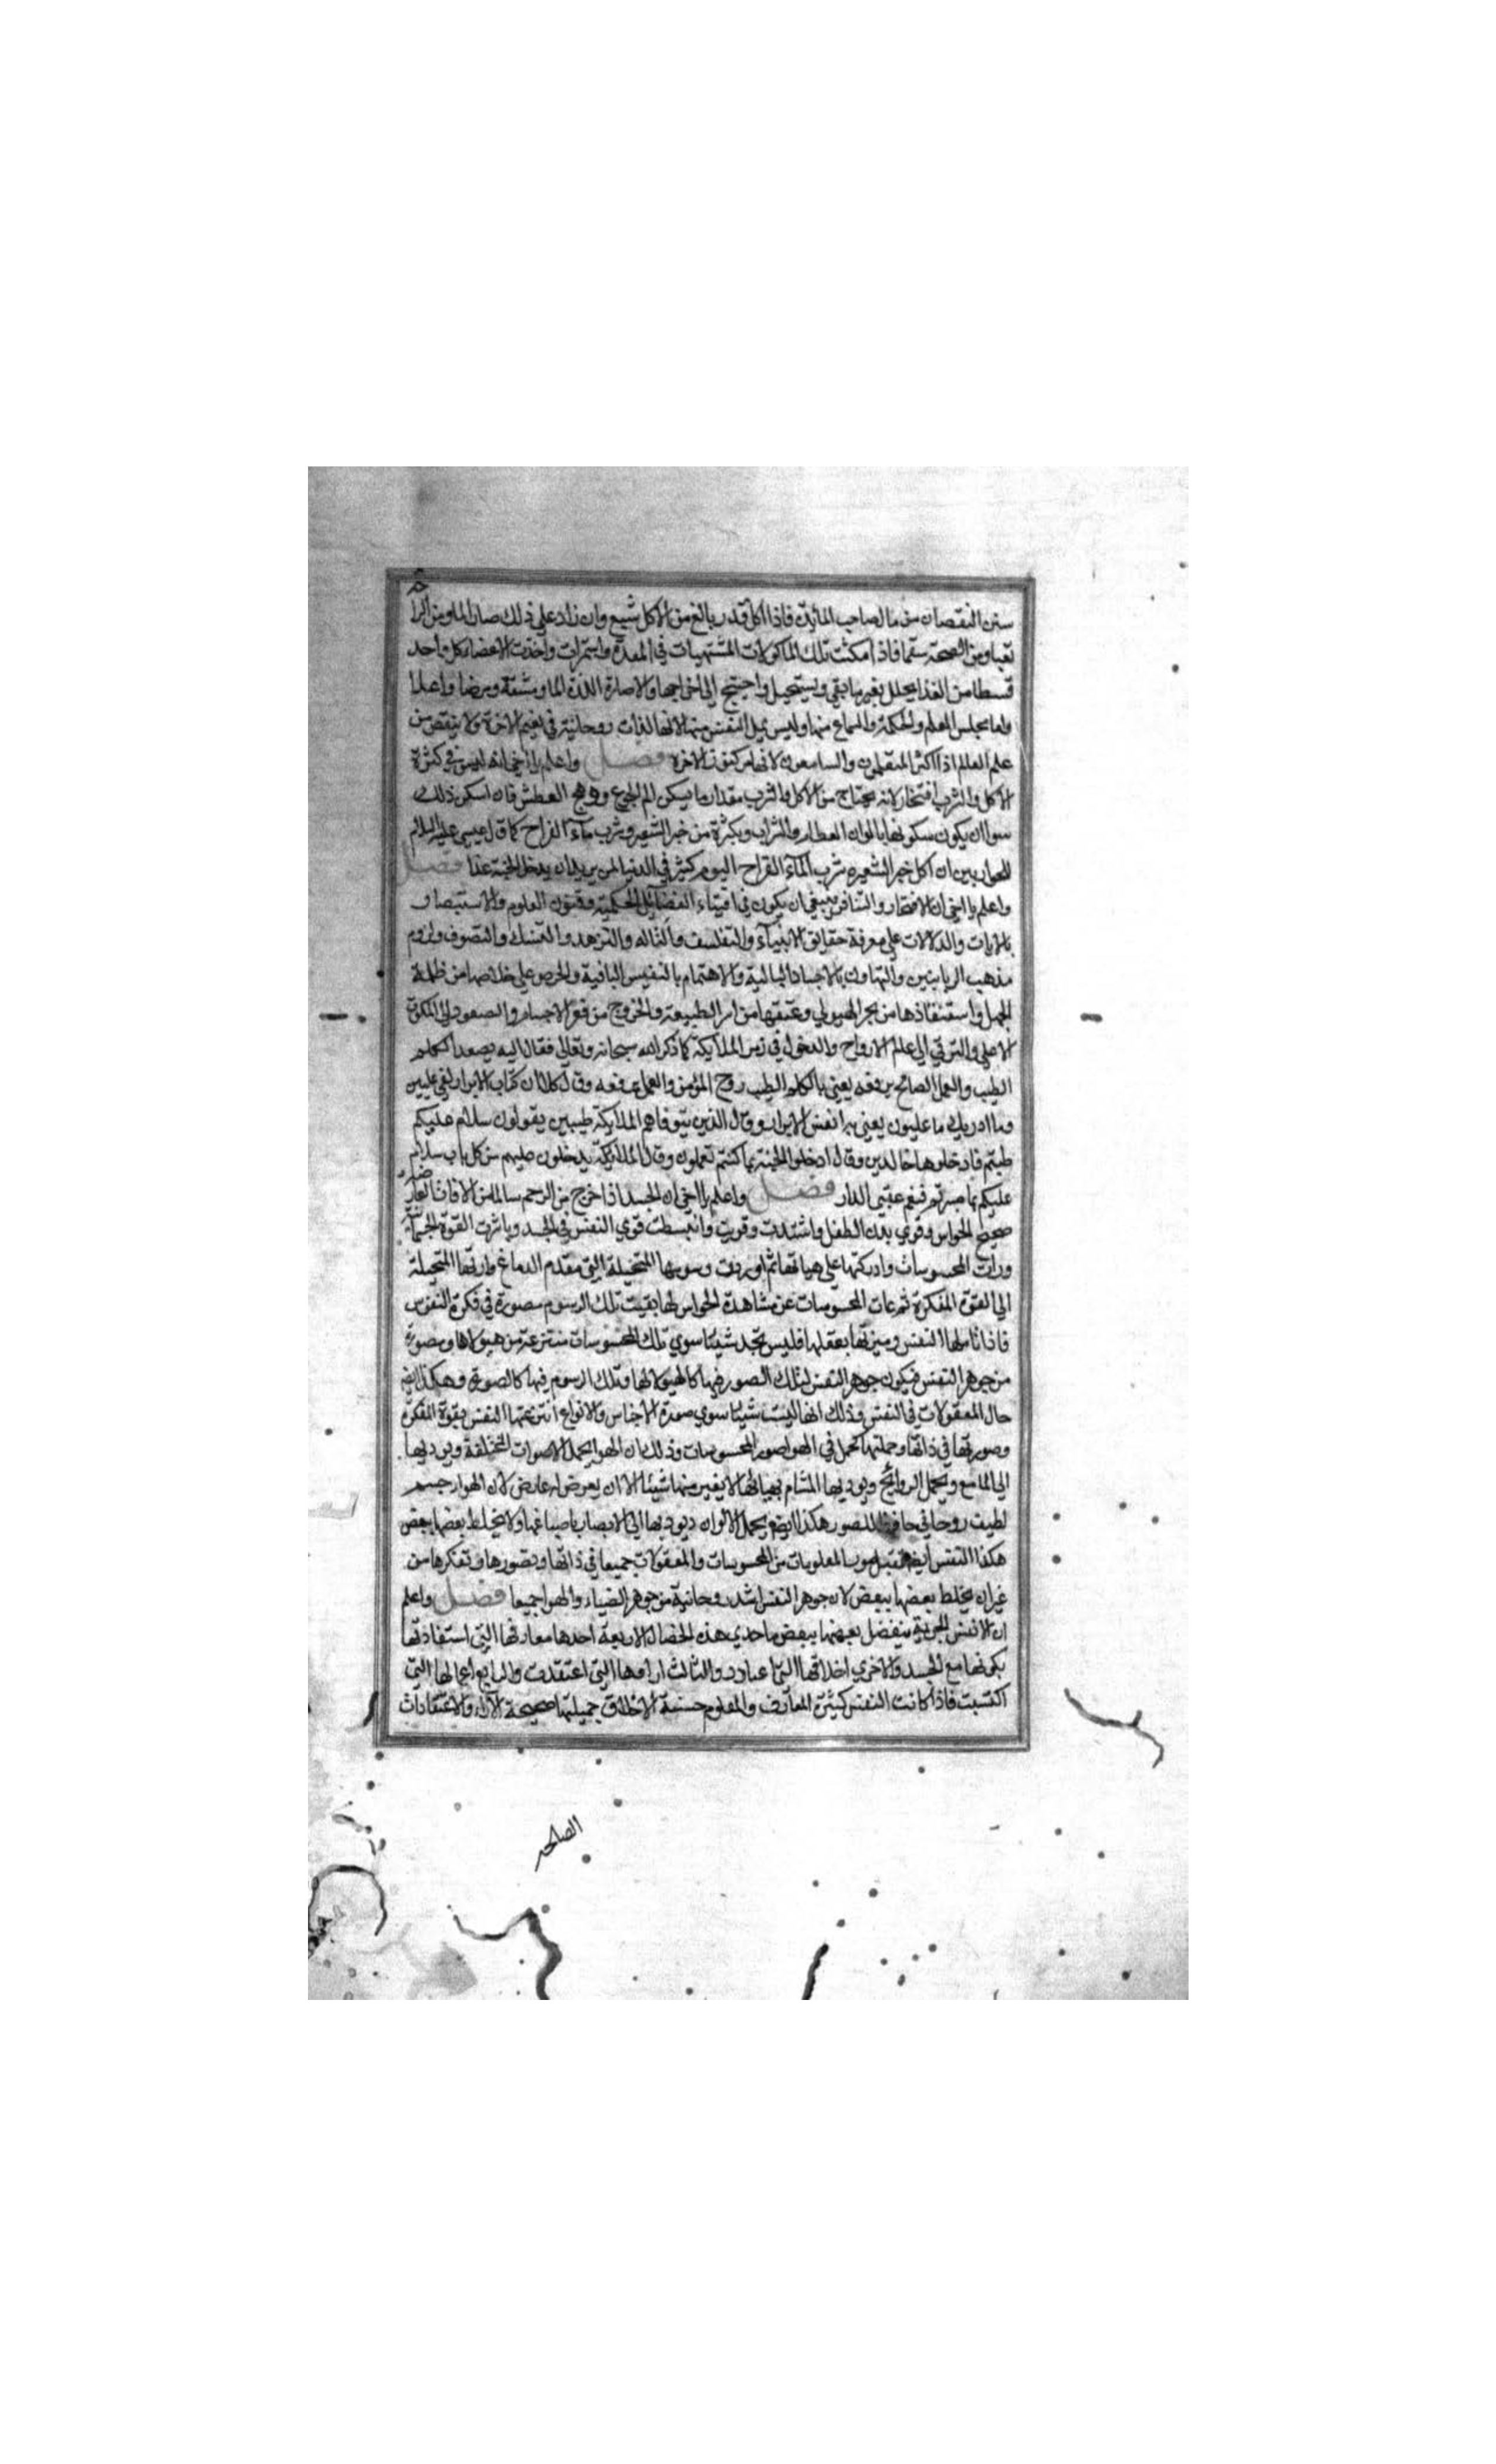 من النقصان من مال صاحب المائدة فاذا اكل قدر بالغ من الاكل شبع وان زاد على ذلك صار الما ومن الرا
تعبا ومن الصحة سقما فاذا مكثت تلك الماكولات المشتهيات في المعدة واستمرات واخذت الاعضا كل واحد
قسطا من الغذا يحلل بغير ما بقي ويستحيل واحتيج الى اخراجها والا صارة اللذة الما ومشقة ومرضا واعلالا
واما مجلس العلم والحكمة والسماع منها وليس يمل النفس منها لانها لذات روحانية في نعيم الاخرة ولا ينقص من
علم العالم اذا اكثر المتعلمون والسامعون لانها من كنوز الاخرة فصل واعلم يا اخي انه ليس في كثرة
الاكل والشرب افتخار لانه يحتاج من الاكل والشرب مقدار ما يسكن الم الجوع ووهج العطش فان اسكن ذلك
سوا ان يكون سكونها بالوان الطعام والشراب وبكثرة من خبز الشعير وشرب ماء القراح كما قال عيسى عليه السلام
للحواريين ان اكل خبز الشعير وشرب الماء القراح اليوم كثير في الدنيا لمن يريد ان يدخل الجنة غدا فصل
واعلم يا اخي ان الافتخار والتنافس ينبغي ان يكون في اقتناء الفضائل الحكمية وفنون العلوم والاستبصار
بالايات والدلالات على معرفة حقايق الاشياء والتفلسف والتاله والتزهد والتنسك والتصوف ولزوم
مذهب الربانيين والتهاون بالاجساد البالية والاهتمام بالنفس الباقية والحرص على خلاصها من ظلمة
الجهل واستنقاذها من بحر الهيولي وعتقها من اسر الطبيعة والخروج من قعر الاجسام والصعود الى الملكوت
الاعلى والترقي الى عالم الارواح والدخول في زمر الملايكة كما ذكر الله سبحانه وتعالى فقال اليه يصعد الكلم
الطيب والعمل الصالح يرفعه يعني بالكلم الطيب روح المؤمن والعمل يرفعه وقال كلا ان كتاب الابرار لفي عليين
وما ادريك ما عليون يعني به انفس الابرار وقال الذين تتوفاهم الملايكة طيبين يقولون سلام عليكم
طبتم فادخلوها خالدين وقال ادخلوا الجنة بما كنتم تعملون وقال الملايكة يدخلون عليهم من كل باب سلام
عليكم بما صبرتم فنعم عقبى الدار فصل واعلم يا اخي ان الجسد اذا خرج من الرحم سالما من الافات العارضة
صحيح الحواس وقوي بدن الطفل واشتدت وقويت وانبسطت قوي النفس في الجسد وباشرت القوة الحساسة
ورات المحسوسات وادركتها على هياتها ثم اوردت رسومها المتخيلة التي مقدم الدماغ وارتها المتخيلة
الى القوة المفكرة ثم غابت المحسوسات عن مشاهدة الحواس لها بقيت تلك الرسوم مصورة في فكرة النفس
فاذا تاملها النفس وميزتها بعقلها فليس تجد شيئا سوي تلك المحسوسات منتزعة من هيولاها ومصورة
من جوهر النفس فيكون جوهر النفس لتلك الصور فيها كالهيولا لها وتلك الرسوم فيها كالصورة وهكذا ايضا
حال المعقولات في النفس وذلك انها ليست شيئا سوي صورة الاجناس والانواع انتزعتها النفس بقوة المفكرة
وصورتها في ذاتها وحملتها كحمل في الهوا صور المحسوسات وذلك ان الهوا يحمل الاصوات المختلفة ويوديها
الى المسامع ويحمل الروائح ويوديها المشام بهياتها لا يغير منها شيئا الا ان يعرض له عارض لان الهوا جسم
لطيف روحاني حافظ للصور هكذا الضوء يحمل الالوان ويوديها الى الابصار باصباغها ولا يختلط بعضها ببعض
هكذا النفس ايضا تقبل صور المعلومات من المحسوسات والمعقولات جميعا في ذاتها وتصورها وتفكرها من
غير ان يختلط بعضها ببعض لان جوهر النفس اشد روحانية من جوهر الضياء والهوا جميعا فصل واعلم
ان الانفس الجزية يتفضل بعضها ببعض باحدي هذه الخصال الاربعة احدها معارفها التي استفادتها
بكونها مع الجسد والاخري اخلاقها التي اعتادت والثالث اراوها التي اعتقدت والرابع اعمالها التي
اكتسبت فاذا كانت النفس كثيرة المعارف والعلوم حسنة الاخلاق جميلتها صحيحة الآراء والاعتقادات
الصالحه